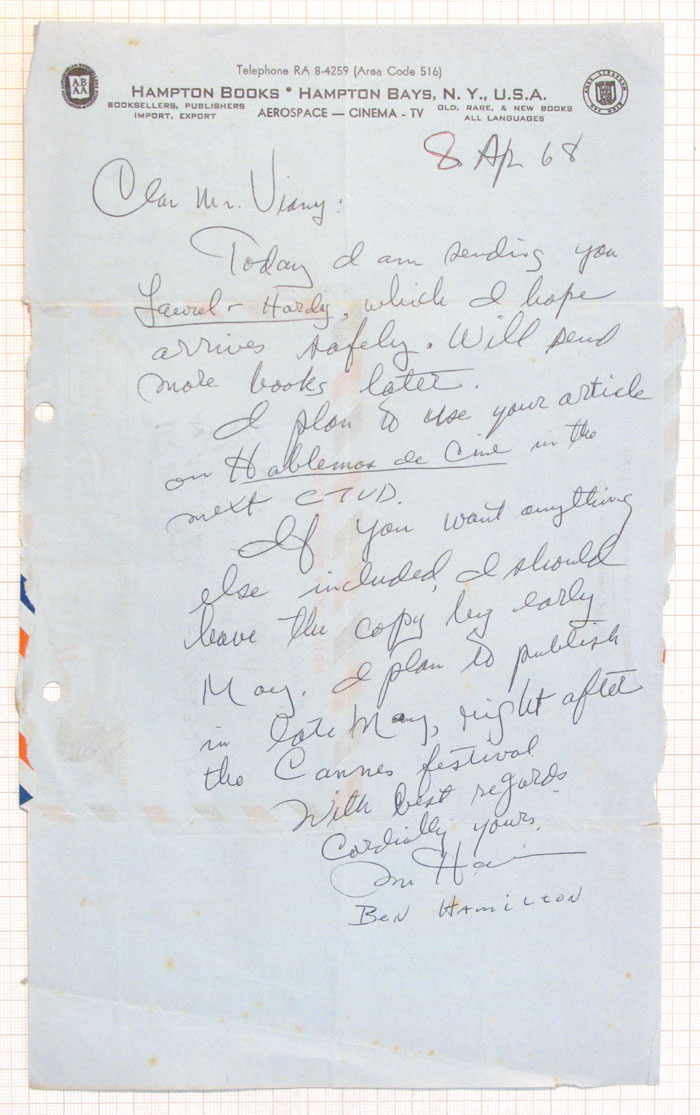 Telephone RA 8-4259 (Area Code 516)
HAMPTON BOOKS • HAMPTON BAYS, N. Y., U.S.A.
BOOKSELLERS, PUBLISHERS
IMPORT, EXPORT
AEROSPACE — CINEMA - TV
OLD, RARE, & NEW BOOKS
ALL LANGUAGES
ABAA
8 Ap 68
Dear Mr. Viany:
Today I am sending you
Laurel - Hardy, which I hope
arrives safely. Will send
more books later.
I plan to use your article
on Hablemos de Cine in the
next CTVD.
If you want anything
else included, I should
have the copy by early
May. I plan to publish
in late May, right after
the Cannes festival
With best regards
Cordially yours,
BEN HAMILTON